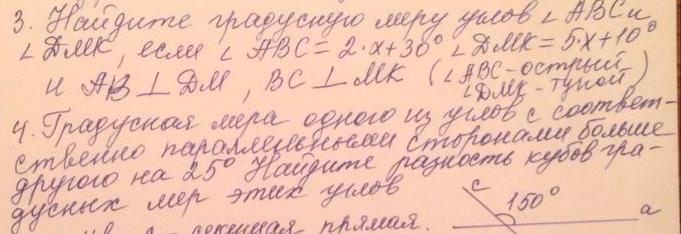 3. Найдите градусную меру углов ∠ ABC и
∠ DMK, если ∠ ABC = 2·x+30° ∠ DMK = 5·x+10°
и AB ⊥ DM, BC ⊥ MK (∠ ABC - острый
∠ DMK - тупой)
4. Градусная мера одного из углов с соответ-
ственно параллельными сторонами больше
другого на 25° Найдите разность кубов гра-
дусных мер этих углов
c 150° a
секущая прямая.